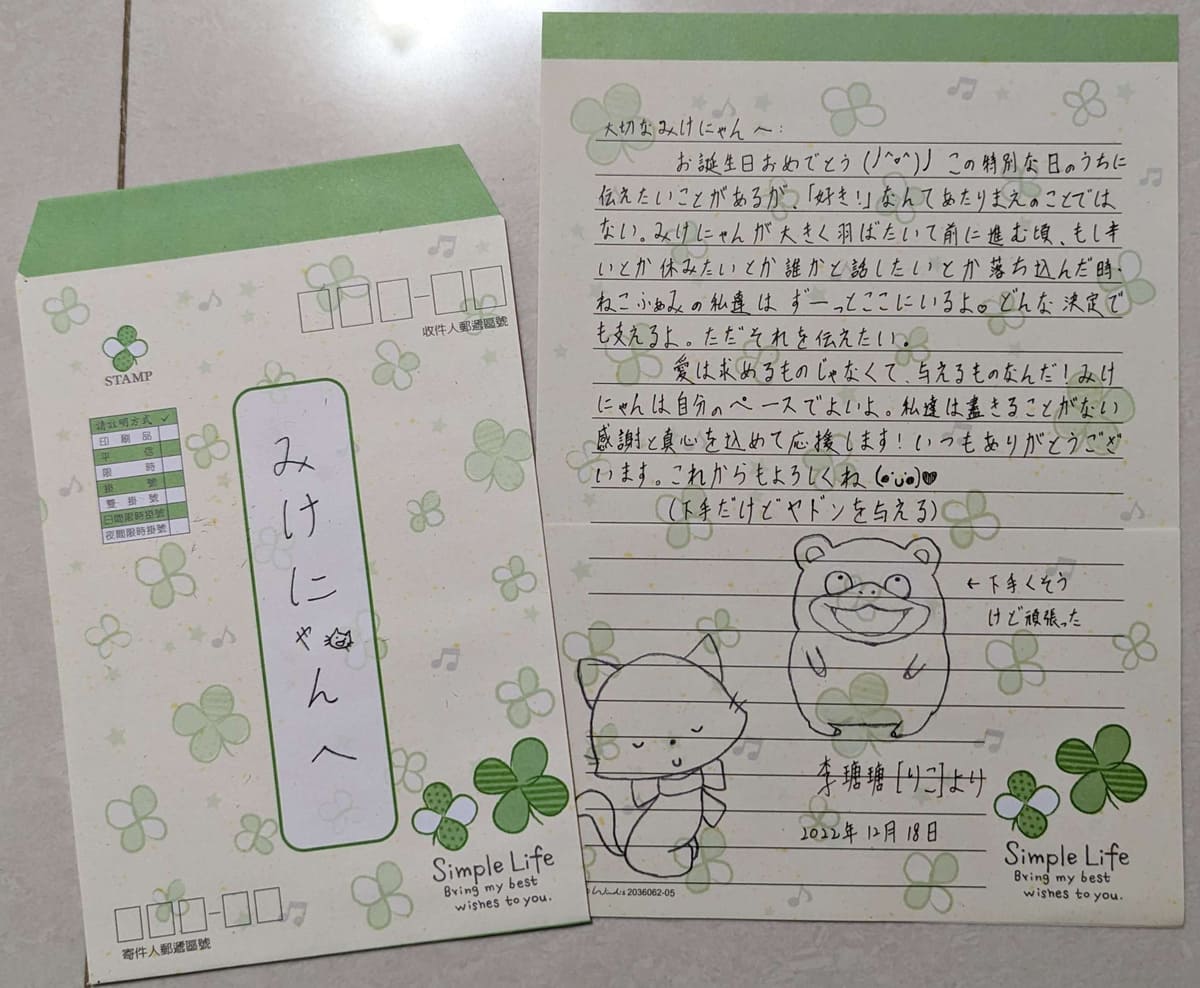 STAMP
收件人郵遞區號
請註明方式 ✓
印刷品
平信
限時
掛號
雙掛號
日間限時掛號
夜間限時掛號
みけにゃんへ
Simple Life
Bring my best
wishes to you.
寄件人郵遞區號
大切なみけにゃんへ:
お誕生日おめでとう(ノ^o^)ノ この特別な日のうちに
伝えたいことがあるが、「好き!」なんてあたりまえのことでは
ない。みけにゃんが大きく羽ばたいて前に進む頃、もし辛
いとか休みたいとか誰かと話したいとか落ち込んだ時、
ねこふぁみの私達はずーっとここにいるよ。どんな決定で
も支えるよ。ただそれを伝えたい。
愛は求めるものじゃなくて、与えるものなんだ!みけ
にゃんは自分のペースでよいよ。私達は盡きることがない
感謝と真心を込めて応援します!いつもありがとうござ
います。これからもよろしくね(•ᴗ•)♥
(下手だけどヤドンを与える)
←下手くそう
けど頑張った
李瑭瑭[りこ]より
2022年12月18日
Simple Life
Bring my best
wishes to you.
2036062-05